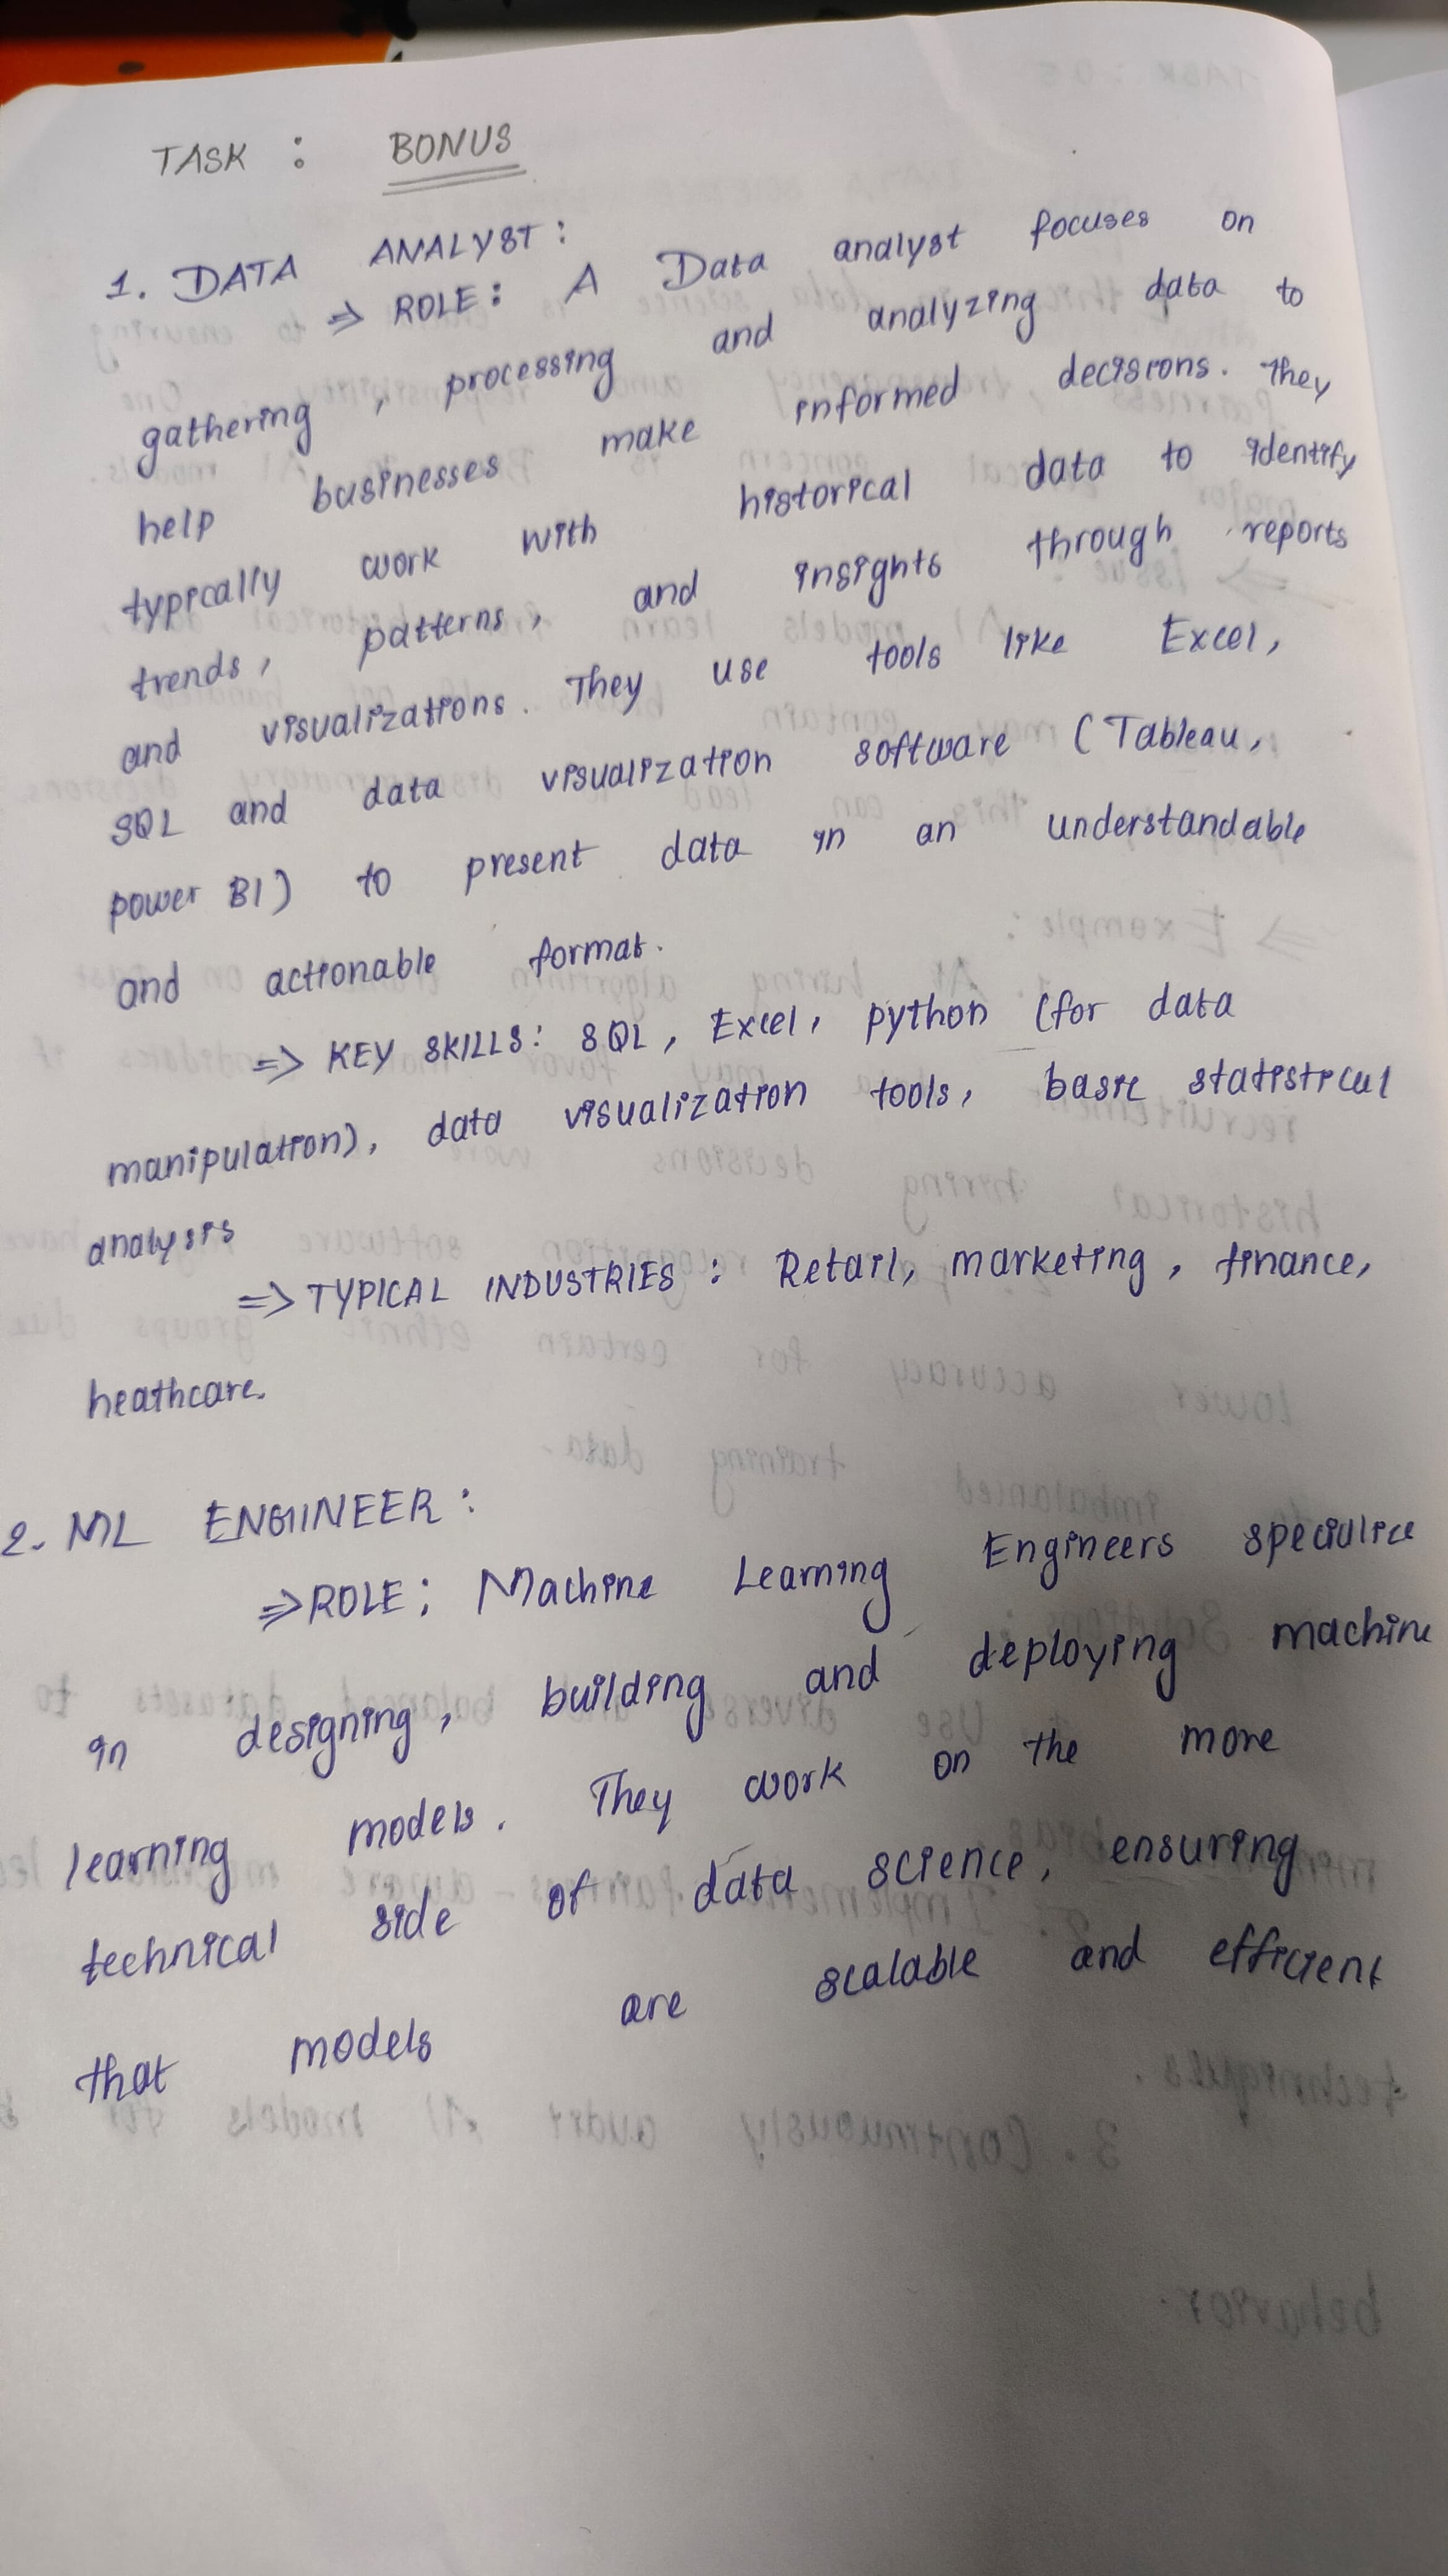 TASK : BONUS
1. DATA ANALYST:
⇒ ROLE: A Data analyst focuses on
gathering, processing and analyzing data to
help businesses make informed decisions. They
typically work with historical data to identify
trends, patterns, and insights through reports
and visualizations. They use tools like Excel,
SQL and data visualization software (Tableau,
power BI) to present data in an understandable
and actionable format.
⇒ KEY SKILLS: SQL, Excel, python (for data
manipulation), data visualization tools, basic statistical
analysis
⇒ TYPICAL INDUSTRIES: Retail, marketing, finance,
heathcare.
2. ML ENGINEER:
⇒ ROLE: Machine Learning Engineers specialize
in designing, building and deploying machine
learning models. They work on the more
technical side of data science, ensuring
that models are scalable and efficient